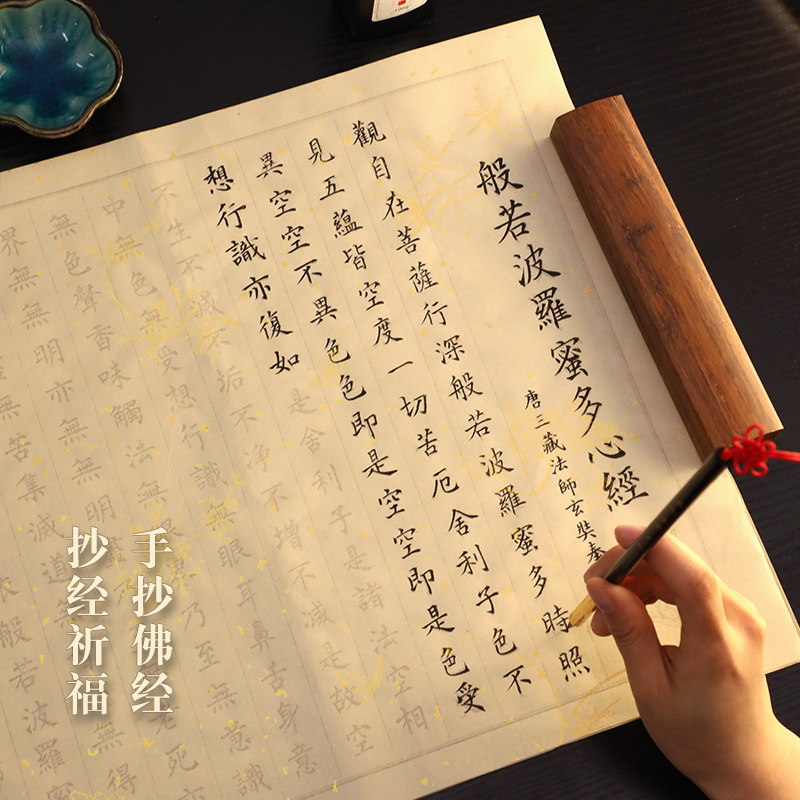 般若波羅蜜多心經
唐三藏法師玄奘
觀自在菩薩行深般若波羅蜜多時照
見五蘊皆空度一切苦厄舍利子色不
異空空不異色色即是空空即是色受
想行識亦復如是舍利子是諸法空相
不生不滅不垢不淨不增不減是故空
中無色無受想行識無眼耳鼻舌身意
無色聲香味觸法無乃至無意識
界無無明亦無無明死亦
無苦集滅道無得
般若波羅蜜
手抄佛经
抄经祈福